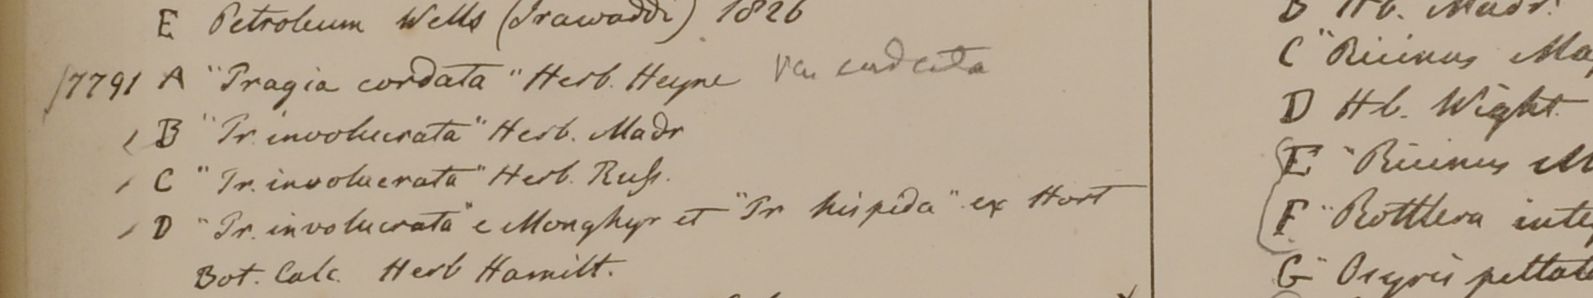 E Petroleum Wells (Irawaddi) 1826
7791 A "Tragia cordata" Herb. Heyne Var cordata
B "Tr. involucrata" Herb. Madr
C "Tr. involucrata" Herb. Russ.
D "Tr. involucrata" e Monghyr et "Tr hispida" ex Hort
Bot. Calc. Herb Hamilt.
B Hb. Madr.
C "Ricinus
D Hb. Wight
E "Ricinus
F "Rottlera
G "Osyris